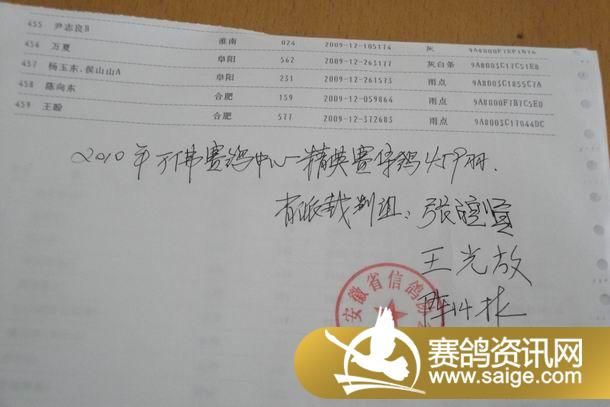 455 尹志良B 淮南 024 2009-12-105174 灰
456 万夏 阜阳 562 2009-12-263177 灰白条 9A80003C17C51E8
457 杨玉东、侯山山A 阜阳 231 2009-12-261573 雨点 9A8003C1855C7A
458 陈向东 合肥 159 2009-12-059864 雨点 9A8000F7B7C5E0
459 王盼 合肥 577 2009-12-372683 雨点 9A8003C17044DC
2010年万佛赛鸽中心一精英赛存鸽459羽.
省派裁判组:张
王光放
安徽省信鸽协
赛鸽资讯网
www.saige.com